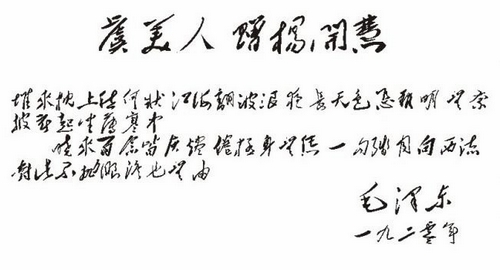 虞美人 赠杨開慧
堆来枕上愁何状 江海翻波浪 夜长天色总难明 無奈
披衣起坐薄寒中
晓来百念皆灰烬 倦极身無凭 一勾残月向西流
对此不抛眼泪也無由
毛泽东
一九二零年